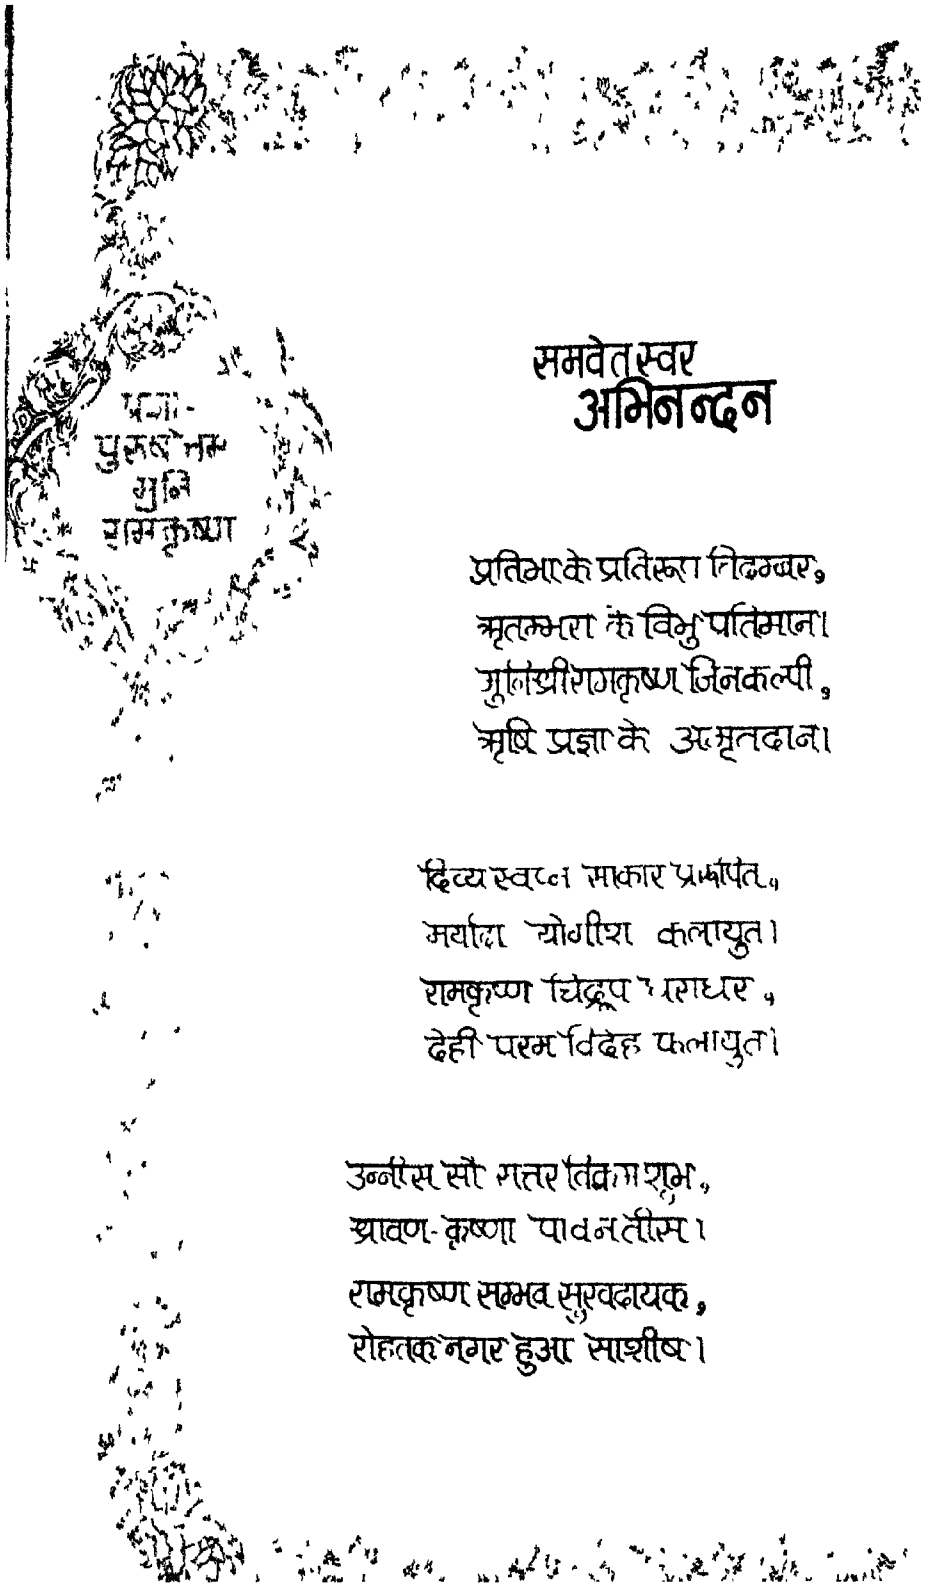 समवेत स्वर
अभिनन्दन
प्रज्ञा-
पुरुषोत्तम
मुनि
रामकृष्ण
प्रतिभा के प्रतिरूप चिदम्बर,
ऋतम्भरा के विभु प्रतिमान।
मुनिश्री रामकृष्ण जिनकल्पी,
ऋषि प्रज्ञा के अमृतदान।
दिव्य स्वप्न साकार प्ररूपित,
मर्यादा योगीश कलायुत।
रामकृष्ण चिद्रूप धराधर,
देही परम विदेह फलायुत।
उन्नीस सौ सत्तर विक्रम शुभ,
श्रावण-कृष्णा पावन तीस।
रामकृष्ण सम्भव सुखदायक,
रोहतक नगर हुआ साशीष।